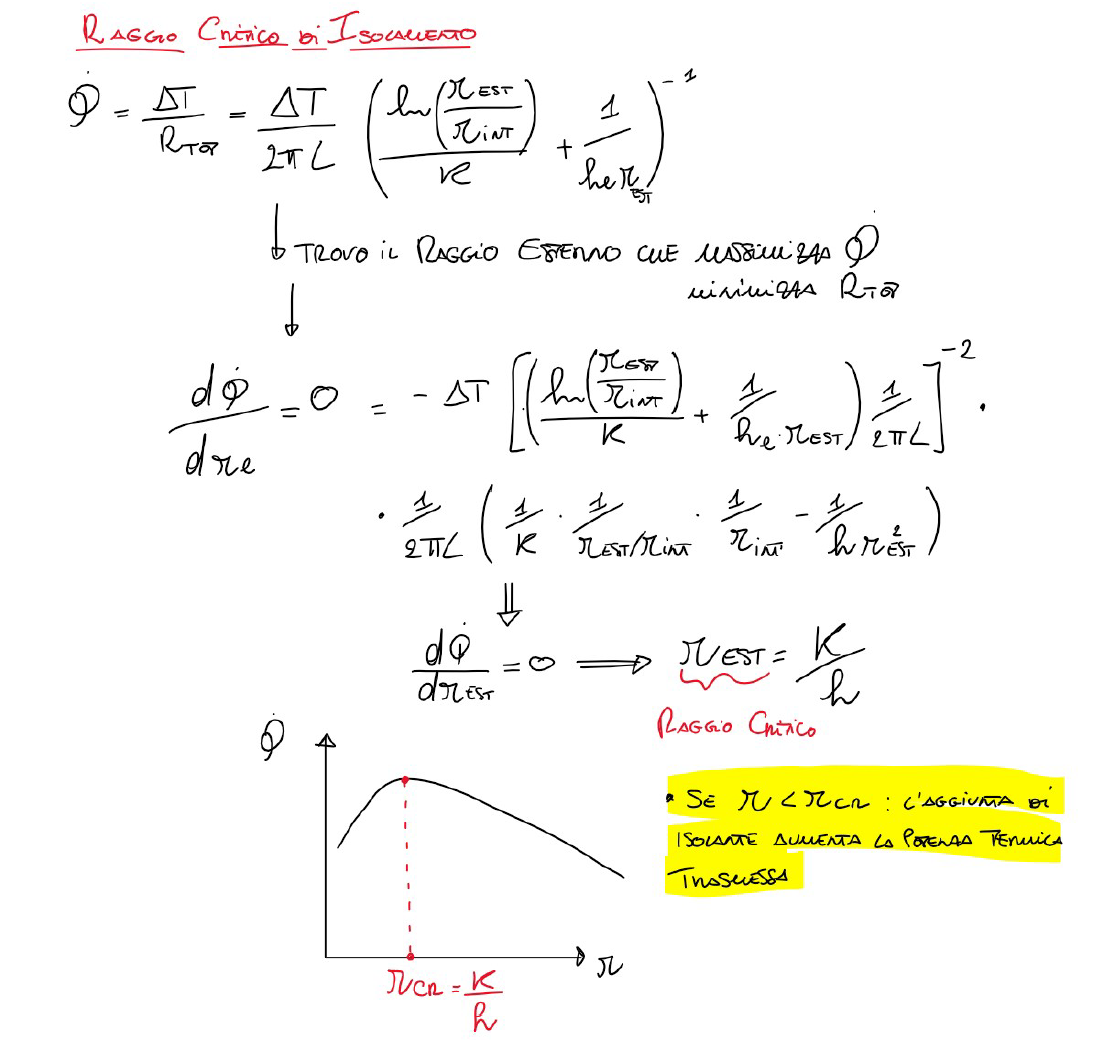 RAGGIO CRITICO DI ISOLAMENTO
Q̇ = ΔT / R_TOT = ΔT / 2πL ( ln(r_EST / r_INT) / K + 1 / (h_e r_EST) )^-1
↓ TROVO IL RAGGIO ESTERNO CHE MASSIMIZZA Q̇
MINIMIZZA R_TOT
↓
dQ̇ / dr_e = 0 = - ΔT [ ( ln(r_EST / r_INT) / K + 1 / (h_e · r_EST) ) 1 / 2πL ]^-2 ·
· 1 / 2πL ( 1/K · 1 / (r_EST/r_INT) · 1 / r_INT - 1 / (h r²_EST) )
⇓
dQ̇ / dr_EST = 0 ⟹ r_EST = K / h
RAGGIO CRITICO
Q̇
• SE r < r_CR : L'AGGIUNTA DI
ISOLANTE AUMENTA LA POTENZA TERMICA
TRASMESSA
r
r_CR = K / h